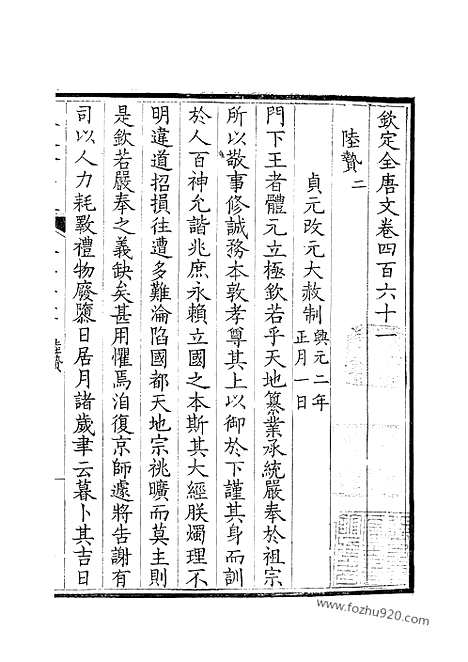 欽定全唐文卷四百六十一
陸贄二
貞元改元大赦制 興元二年正月一日
門下王者體元立極欽若乎天地纂業承統嚴奉於祖宗
所以敬事修誠務本敦孝尊其上以御於下謹其身而訓
於人百神允諧兆庶永賴立國之本斯其大經朕燭理不
明違道招損往遭多難淪陷國都天地宗祧曠而莫主則
是欽若嚴奉之義缺矣甚用懼焉洎復京師遽將告謝有
司以人力耗斁禮物廢隳日居月諸歲聿云暮卜其吉日
www.fozhu920.com